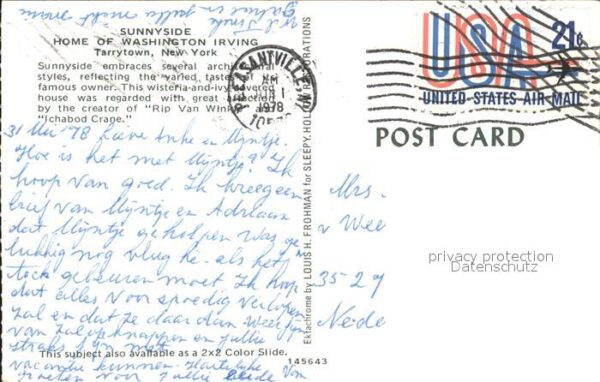 SUNNYSIDE
HOME OF WASHINGTON IRVING
Tarrytown, New York
Sunnyside embraces several architectural
styles, reflecting the varied tastes of
famous owner. This wisteria-and-ivy covered
house was regarded with great affection
by the creator of "Rip Van Winkle
"Ichabod Crane."
31 Mei '78 Lieve Anke en Mijntje.
Hoe is het met Mijntje? Ik
hoop van goed. Ik kreeg een
brief van Mijntje en Adriaan
dat Mijntje geholpen was ge
lukkig nog vlug he. als het
toch gebeuren moet. Ik hoop
dat alles voor spoedig verlopen
zal en dat ze daar dan weer fijn
van zal opknappen en jullie
straks fijn met
vacantie kunnen. Hartelijke
groeten voor jullie beide van
This subject also available as a 2x2 Color Slide.
145643
Ektachrome by LOUIS H. FROHMAN for SLEEPY HOLLOW RESTORATIONS
PLEASANTVILLE
AM
JUN 1
1978
USA
21¢
UNITED STATES AIR MAIL
POST CARD
Mrs.
v Wee
3527
Nede
privacy protection
Datenschutz